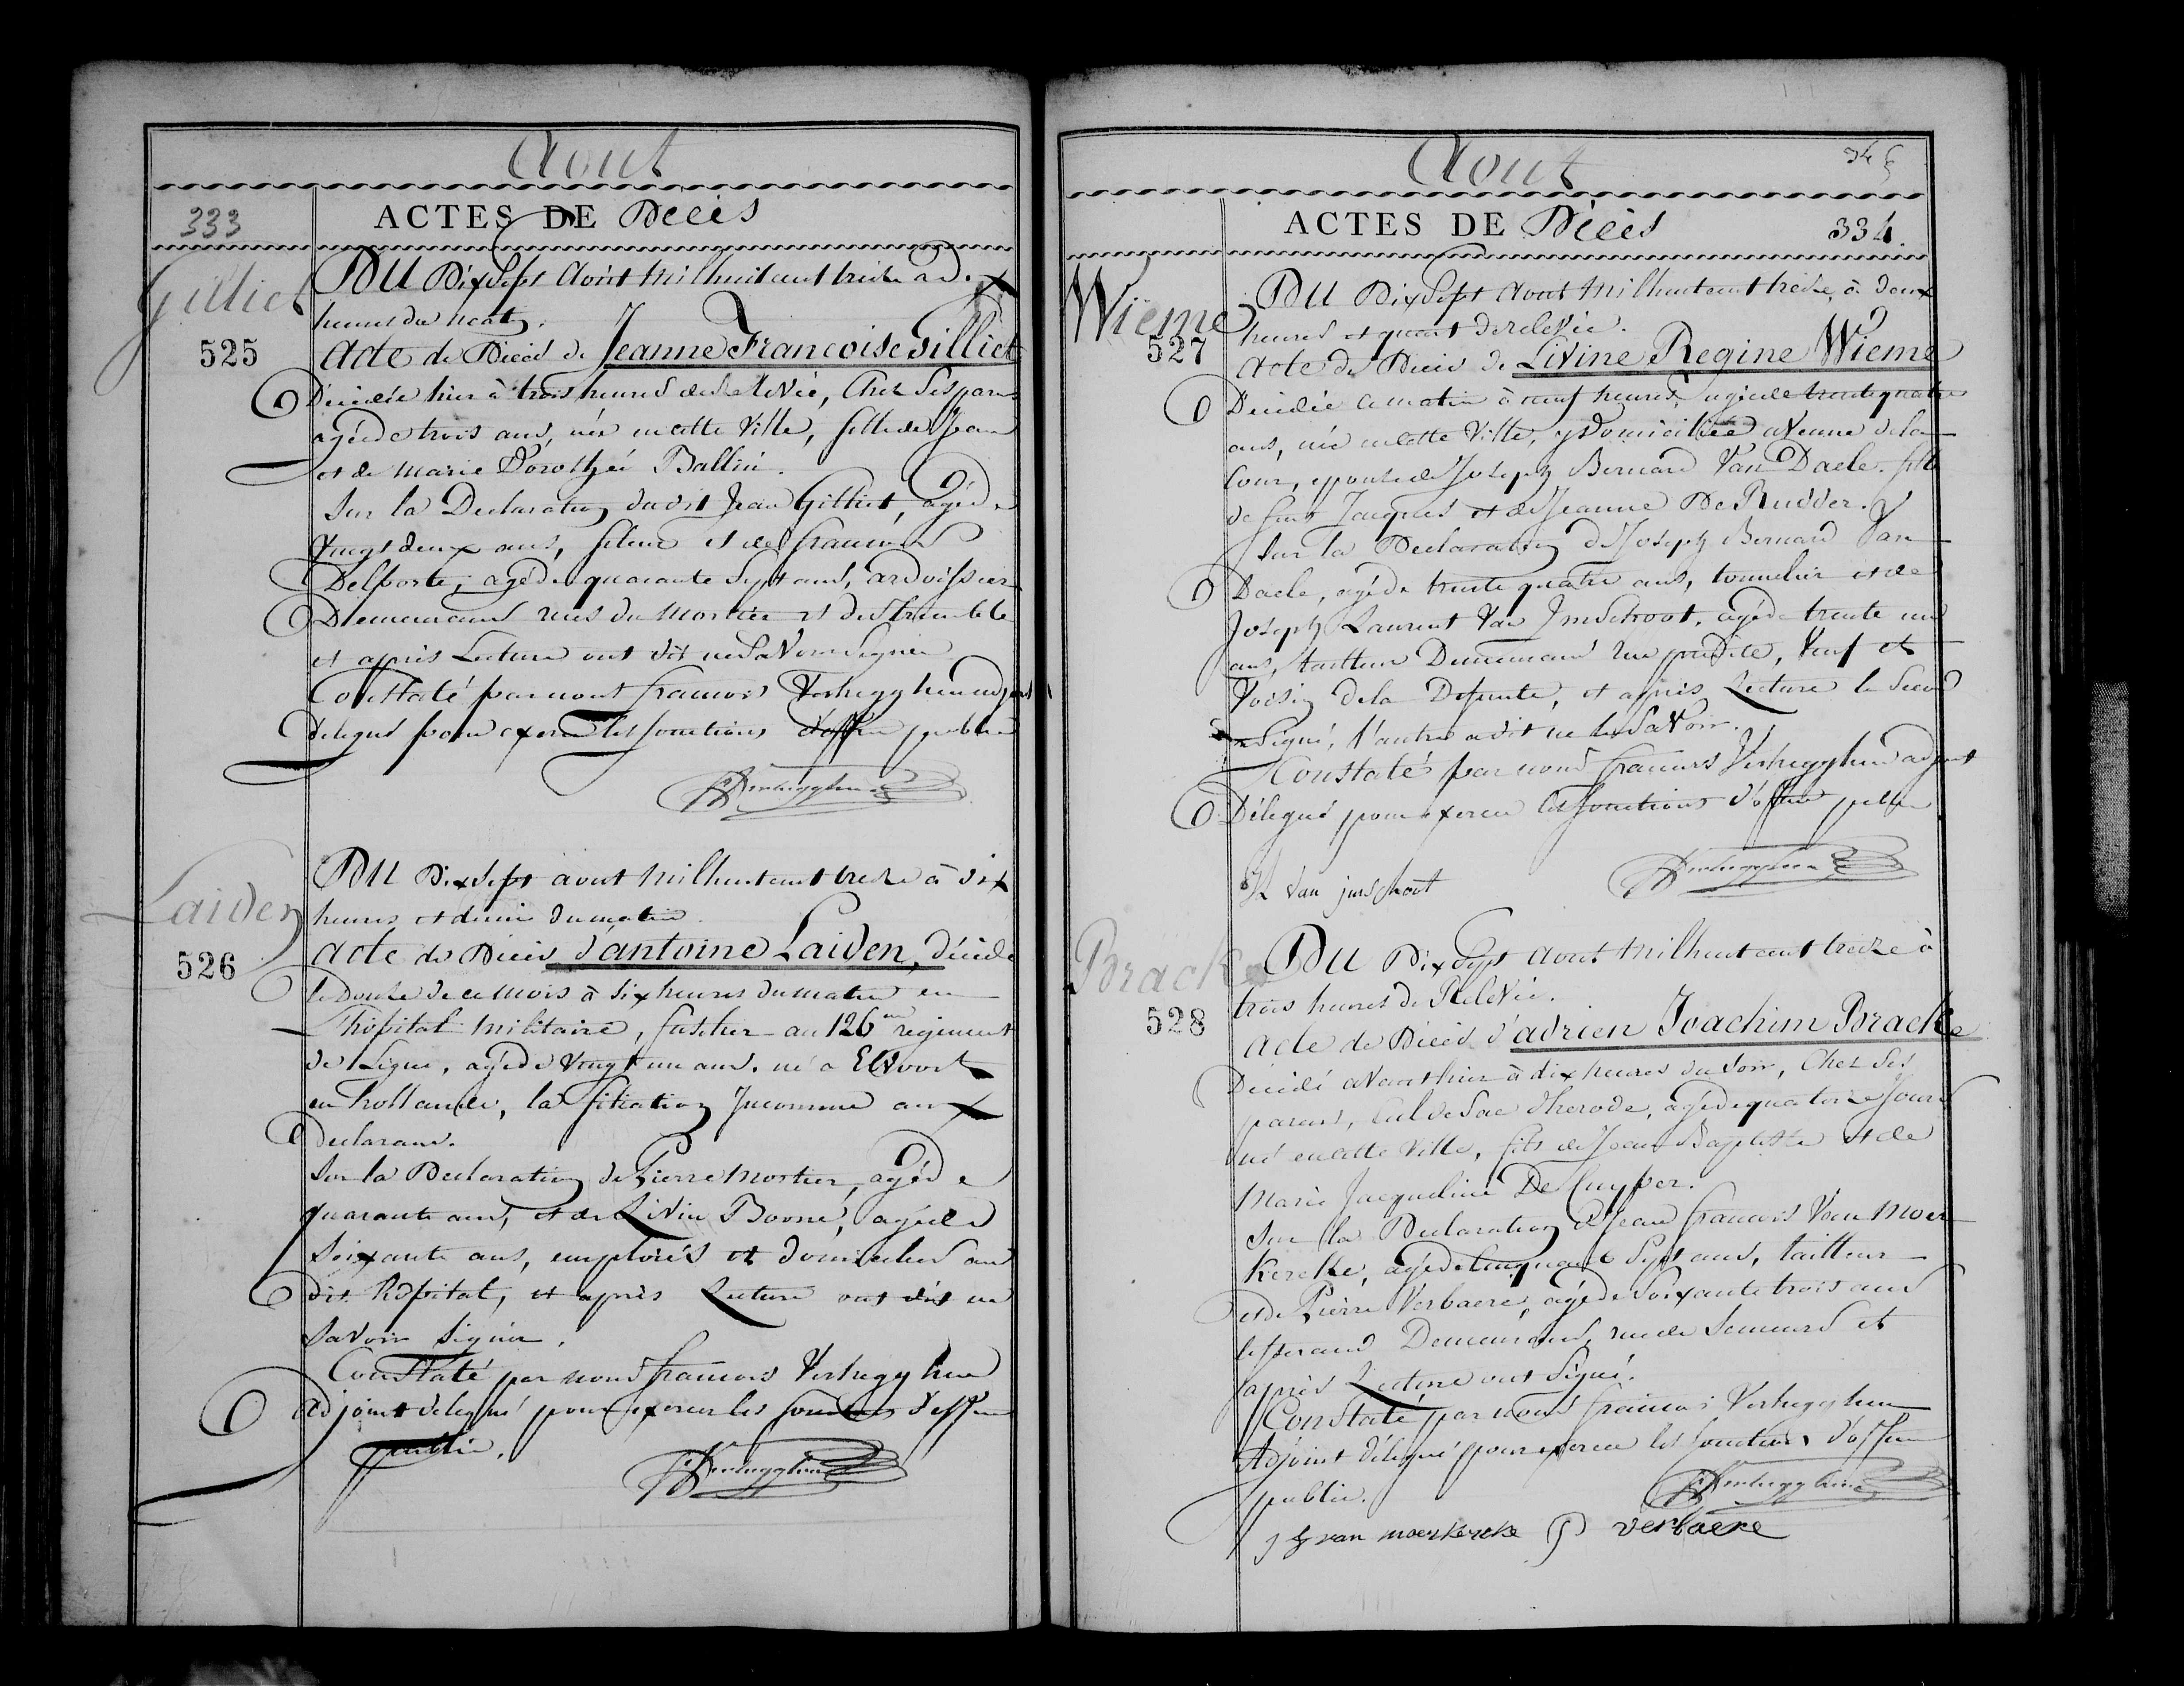 Aout
333
ACTES DE Décès
Gilliet
525
DU Dix Sept Aout Mil huit cent treize a dix
heures du matin.
Acte de Décès de Jeanne Francoise Gilliet
Décédée hier à trois heures de relevée, Chez ses parens
agée de trois ans, née en cette Ville, fille de Jean
et de Marie Dorothée Ballin
Sur la Declaration du dit Jean Gilliet, agé de
Vingt deux ans, fileur et de francois
Delporte, agé de quarante Sept ans, ardoissier
Demeurans rues du Mortier et
et après Lecture ont dit ne Savoir Signer
Constaté par nous francois Verhegghen adjoint
délegué pour exercer les fonctions d'officier public
Verhegghen
Laiden
526
DU Dix Sept aout Mil huit cent treize à dix
heures et demie du matin.
Acte de Décès d'antoine Laiden, décédé
le Douze de ce mois à six heures du matin en
l'hopital Militaire, fusilier au 126me regiment
de Ligne, agé de Vingt un ans, né a
en hollande, la filiation Inconnue aux
declarans.
Sur la Declaration de Pierre Mortier, agé de
quarante ans, et de Livin Boone, agé de
Soixante ans, emploiés et domiciliés au
dit hopital, et après Lecture ont dit ne
Savoir Signer.
Constaté par nous francois Verhegghen
adjoint delegué pour exercer les fonctions d'officier
public.
Verhegghen
Aout
ACTES DE Décès
334.
Wieme
527
DU Dix Sept Aout Mil huit cent treize, à deux
heures et quart de relevée.
Acte de Décès de Livine Regine Wieme
Décédée ce matin à neuf heures, agée de trente quatre
ans, née en cette Ville, y domiciliée avenue de la
Cour, epouse de Joseph Bernard Van Daele, fille
de feus Jacques et de Jeanne De Rudder.
Sur la Declaration de Joseph Bernard Van
Daele, agé de trente quatre ans, tonnelier et de
Joseph Laurent Van Imschoot, agé de trente un
ans, tailleur Demeurans rue predite, Veuf et
Voisin de la Defunte, et après Lecture le Second
a Signé, l'autre a dit ne le Savoir.
Constaté par nous francois Verhegghen adjoint
Délegué pour exercer les fonctions d'officier public
Verhegghen
JL van imschoot
Bracke
528
DU Dix Sept Aout Mil huit cent treize à
trois heures de Relevée.
Acte de Décès d'adrien Joachim Bracke
Décédé avant hier à dix heures du Soir, Chez Ses
parens, Cul de Sac d'herode, agé de quatorze Jours
né en cette Ville, fils de Jean Baptiste et de
Marie Jacqueline De Cuyper.
Sur la Declaration de Jean francois Van Moer-
kercke, agé de Cinquante Sept ans, tailleur
et de Pierre Verbaere, agé de Soixante trois ans
Demeurans, rue de et
après Lecture ont Signé.
Constaté par nous francois Verhegghen
Adjoint délegué pour exercer les fonctions d'officier
public.
Verhegghen
J f van moerkercke P verbaere